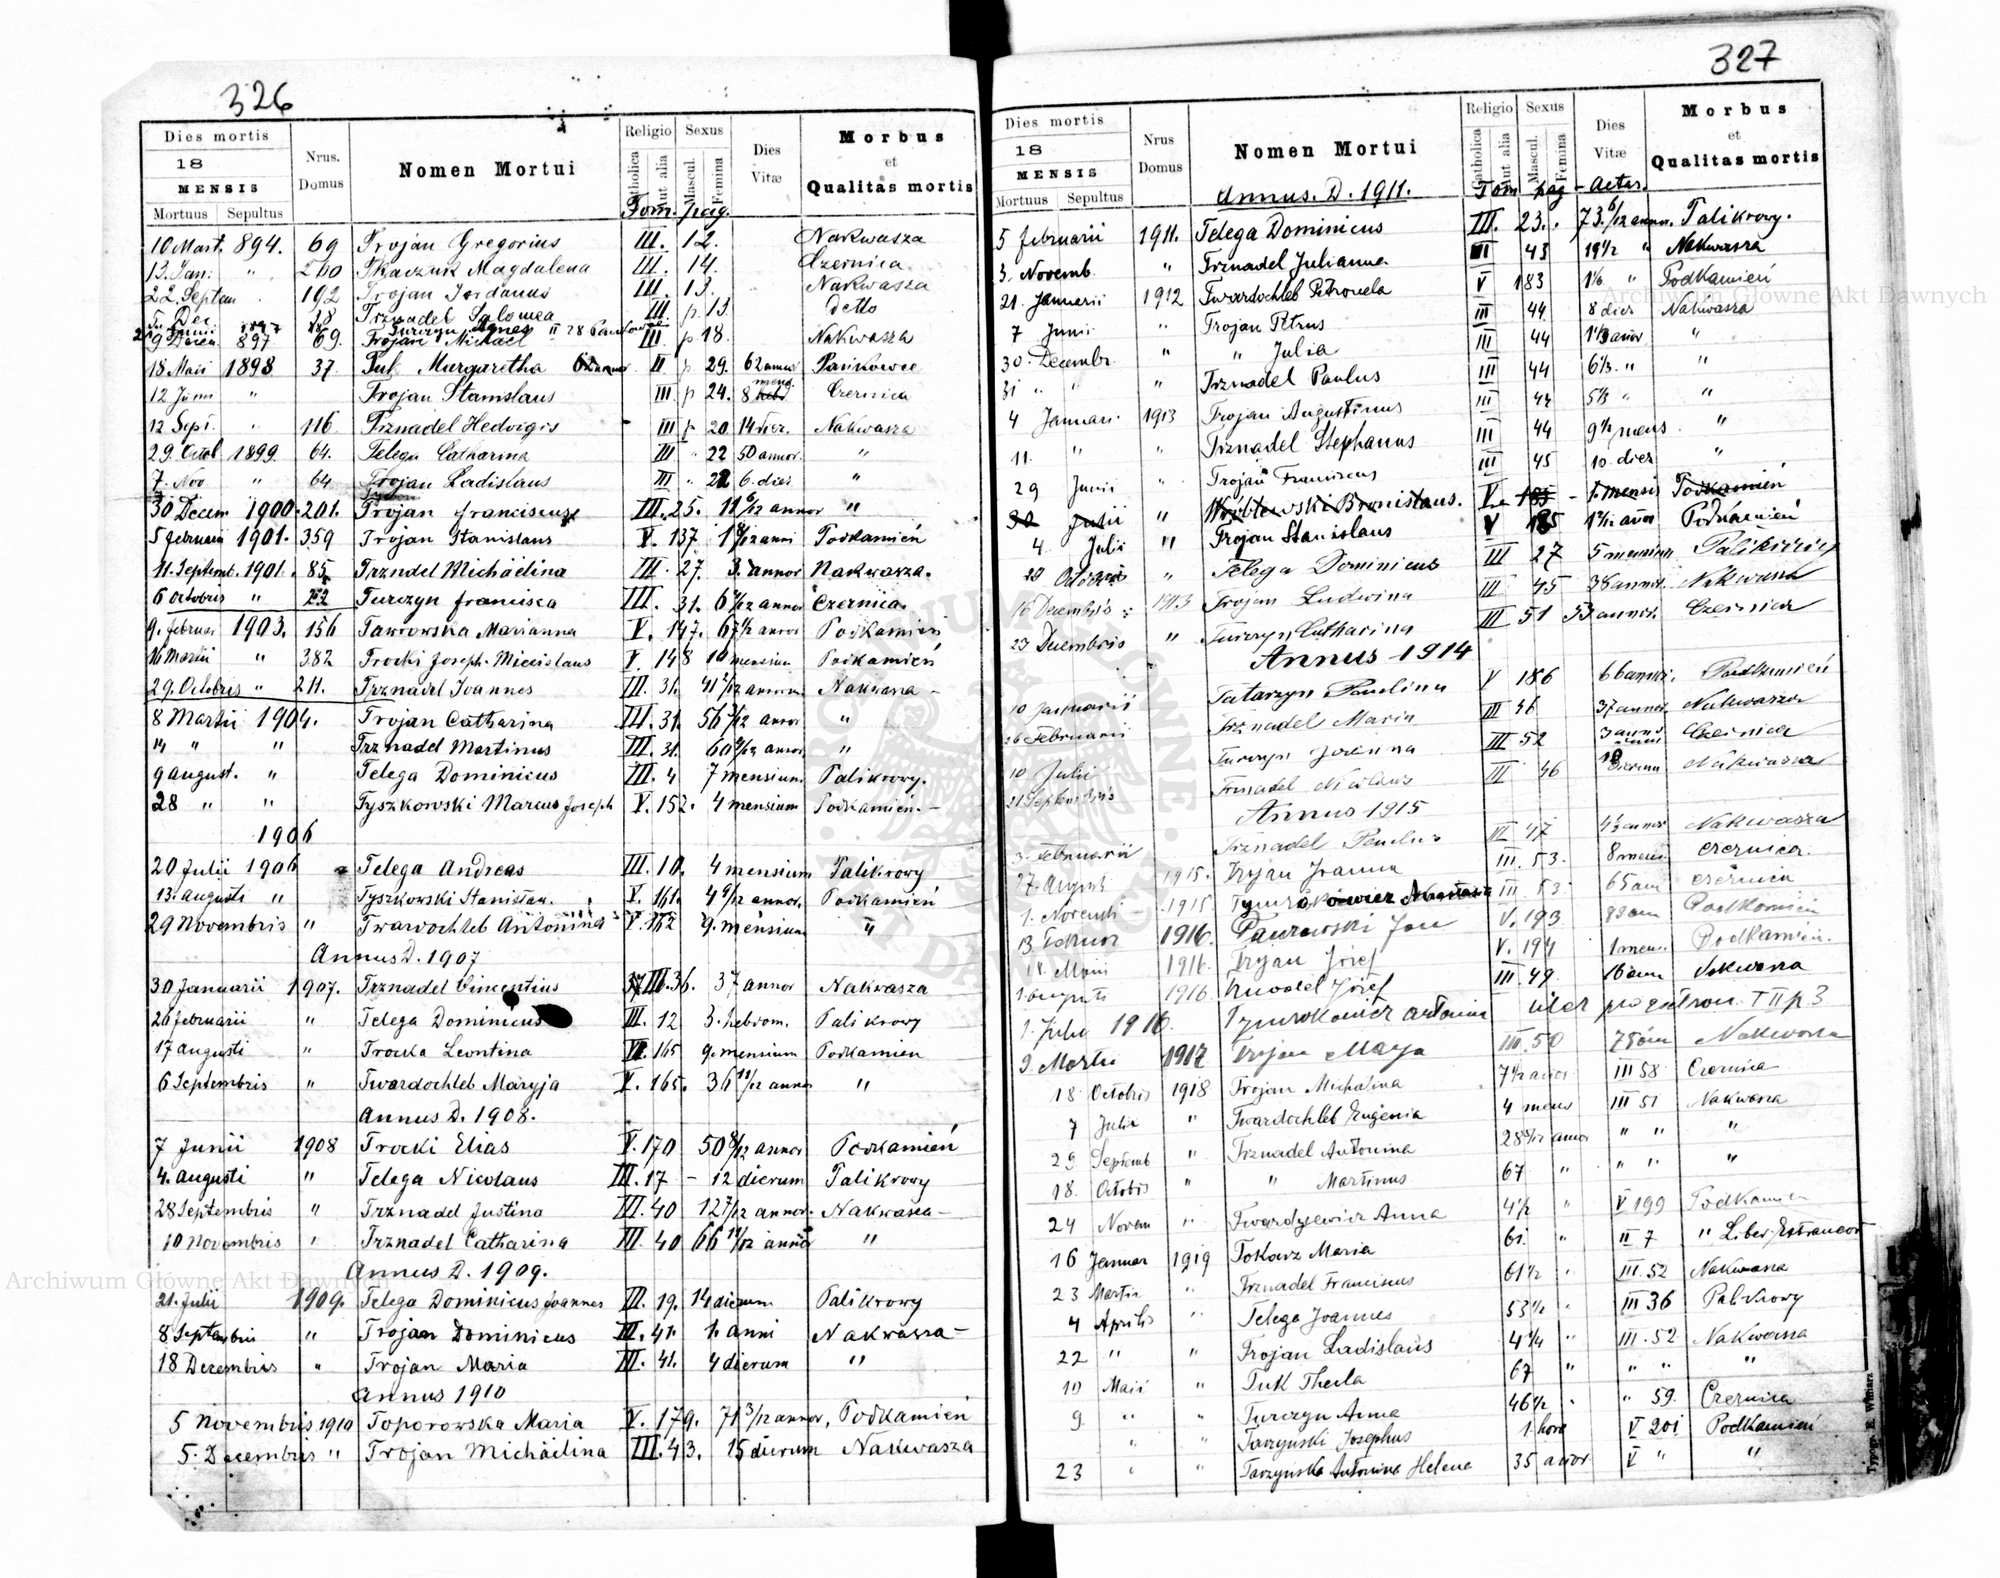 326
Dies mortis
18
MENSIS
Mortuus Sepultus
Nrus. Domus
Nomen Mortui
Religio
Catholica
Aut alia
Sexus
Mascul.
Femina
Dies Vitæ
Morbus et Qualitas mortis
Tom. pag.
10 Mart. 894. 69 Trojan Gregorius III. 12. Nakwasza
13. Jan. " 260 Tkaczuk Magdalena III. 14. Czernica
22. Septem 192 Trojan Jordanus III. 13. Nakwasza
5. Dec 18 Trznadel Salomea III p. 13. detto
Turczyn Agnes II 28
9 897 69. Trojan Michael III p. 18. Nakwasza
18 Maii 1898 37. Puk Margaretha II p 29. 62 annor Pańkowce
12 Junii " Trojan Stanislaus III p 24. 8 mens. Czernica
12 Sept. " 116 Trznadel Hedvigis III p 20 14 dier. Nakwasza
29. Octob 1899. 64. Telega Catharina III " 22 50 annor. "
7. Nov " 64 Trojan Ladislaus III " 22 6. dier "
30 Decem 1900. 201. Trojan franciscus III. 25. 11 6/12 annor "
5 februarii 1901. 359 Trojan Stanislaus V. 137 1 8/12 anni Podkamień
11. Septemb. 1901. 85 Trzndel Michäelina III. 27. 3. annor Nakwasza.
6 octobris " Turczyn francisca III. 31. annor Czernica.
9. februar 1903. 156 Taworowska Marianna V. 147. 67 1/2 annor Podkamień
16 Martii " 382 Trocki Joseph-Miecislaus V. 148 10 mensium Podkamień
29. Octobris " 211. Trznadel Joannes III. 31. 41 2/12 annorum Nakwasza -
8 Martii 1904. Trojan Catharina III. 31. annor "
14 " " Trznadel Martinus III. 31. annor "
9 august. " Telega Dominicus III. 4. 7 mensium Palikrowy.
28 " " Tyszkowski Marcus Joseph V. 152. 4 mensium Podkamień. -
1906
20 Julii 1906 Telega Andreas III. 10. 4 mensium Palikrowy
13. augusti " Tyszkowski Stanislau. V. 161. 4 9/12 annor. Podkamień
29 Novembris " Twarochleb Antonina V. 162 9. mensium "
Annus D. 1907
30 Januarii 1907. Trznadel Vincentius III. 36. 37 annor Nakwasza
26 februarii " Telega Dominicus III. 12 3. hebdom. Palikrowy
17 augusti " Trocka Leontina V. 165 9. mensium Podkamien
6 Septembris " Twardochleb Maryja V. 165. 36 11/12 annor "
Annus D. 1908.
7 Junii 1908 Trocki Elias V. 170 50 8/12 annor Podkamień
4. augusti " Telega Nicolaus III. 17 - 12 dierum Palikrowy
28 Septembris " Trznadel Justina III. 40 12 7/12 annor. Nakwasza -
10 Novembris " Trznadel Catharina III. 40 66 11/12 annor "
Annus D. 1909.
21. Julii 1909. Telega Dominicus Joannes III. 19. 14 dierum Palikrowy
8 Septembris " Trojan Dominicus III. 41. 1. anni Nakwasza -
18 Decembris " Trojan Maria III. 41. 4 dierum "
Annus 1910
5 Novembris 1910 Toporowska Maria V. 179. 71 3/12 annor, Podkamień
5. Decembris " Trojan Michäelina III. 43. 15 dierum Nakwasza
327
Dies mortis
18
MENSIS
Mortuus Sepultus
Nrus Domus
Nomen Mortui
Religio
Catholica
Aut alia
Sexus
Mascul.
Femina
Dies Vitæ
Morbus et Qualitas mortis
Annus. D. 1911. Tom pag - Aetas.
5 februarii 1911. Telega Dominicus III. 23. 73. 6/12 annor. Palikrowy.
3. Novemb. " Trznadel Julianna III 43 19 1/2 " Nakwasza
21. Januarii 1912 Twardochleb Petronela V 183 1 1/6 " Podkamień
7 Junii " Trojan Petrus III 44 8 dier Nakwasza
30. Decembr. " " Julia III 44 "
31 " " " Trznadel Paulus III 44 6 1/3. " "
4 Januari 1913 Trojan Augustinus III 44 "
11. " " Trznadel Stephanus III 44 9 1/2 mens. "
29 Junii " Trojan Franciscus III 45 10. dier "
30 Julii " Wróblewski Bronislaus. V. 185 - 1. mensis Podkamień
4. Julii " Trojan Stanislaus V 185 Podkamień
29 Octobris " Telega Dominicus III 27 5 mensium Palikrowy
16 Decembris 1913 Trojan Ludwina III 45 38 annor. Nakwasza
23 Decembris " Turczyn Catharina III 51 53 annor. Czernica
Annus 1914
10 Januarii Tatarzyn Paulina V 186 66 annor. Podkamień
26 Februarii Trznadel Maria III 46 37 annor. Nakwasza
10 Julii Turczyn Joanna III 52 Czernica
21 Septembris Trznadel III 46 Nakwasza
Annus 1915
3. Februarii Trznadel Paulus III 47 Nakwasza
27. August 1915. Trojan Joanna III. 53. 8 mens. Czernica.
1. Novemb 1915 III 53 65 ann Czernica
13 1916. Taurowski Jan V. 193 Podkamień
18. Maii 1916. Trojan Józef V. 194 1 mens. Podkamień.
1. augusti 1916 Józef III. 49. 16 ann Nakwasza
1. Julii 1916. T II p 3
9. Martii 1917 Trojan Marya III. 50 Nakwasza
18 Octobris 1918 Trojan Michalina 7 1/2 annor III 58 Czernica
7 Julii " Twardochleb Eugenia 4 mens III 51 Nakwasza
29 Septemb " Trznadel Antonina annor " " "
18. Octobis " " Martinus 67 " " " "
24 Novem " Twardziewicz Anna 4 1/2 " V 199 Podkamień
16 Januar 1919 Tokarz Maria 61. " II 7 " Liber
23 Martii " Trznadel Franciscus 61 1/2 " III. 52 Nakwasza
4 Aprilis " Telega Joannes 53 1/2 " III 36 Palikrowy
22 " " Trojan Ladislaus 4 1/4 " III. 52 Nakwasza
10 Maii " Tuk Thecla 67 " " " "
9. " " Turczyn Anna 46 1/2 " " 59. Czernica
" " Tarzyński Josephus 1. hora V 201 Podkamień
23 " " Tarzyńska Antonina Helena 35 annor. V " "
Typogr. E. Winiarz
Archiwum Główne Akt Dawnych
Archiwum Główne Akt Dawnych